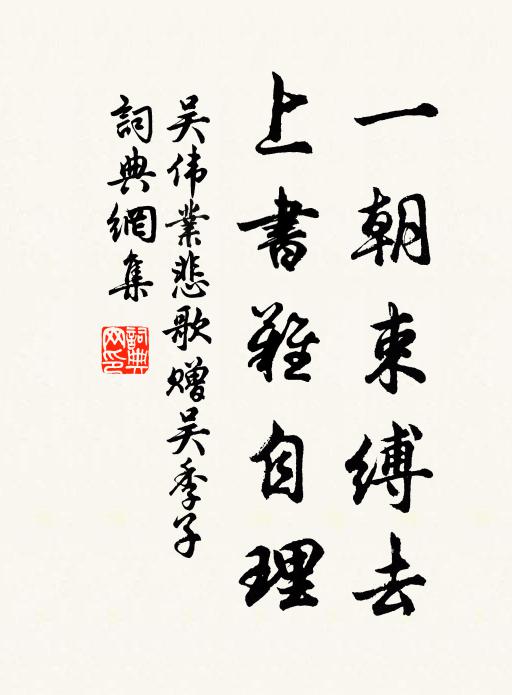 一朝束缚去
上書難自理
吴伟業悲歌赠吴季子
詞典網集
詞典网印